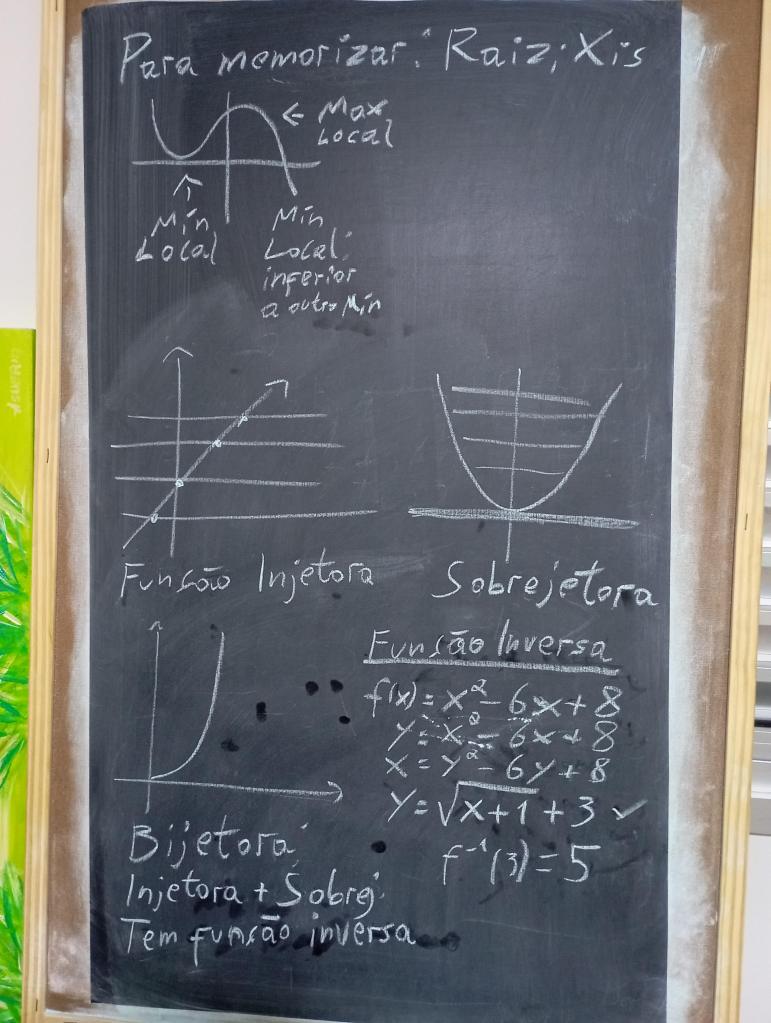 Para memorizar: Raiz; Xis
← Max
Local
↑
Mín
Local
Mín
Local:
inferior
a outro Mín
Funsão Injetora
Sobrejetora
Bijetora:
Injetora + Sobrej.
Tem funsão inversa
Funsão Inversa
f(x) = x² - 6x + 8
y = x² - 6x + 8
x = y² - 6y + 8
y = √x+1 + 3 ✓
f⁻¹(3) = 5